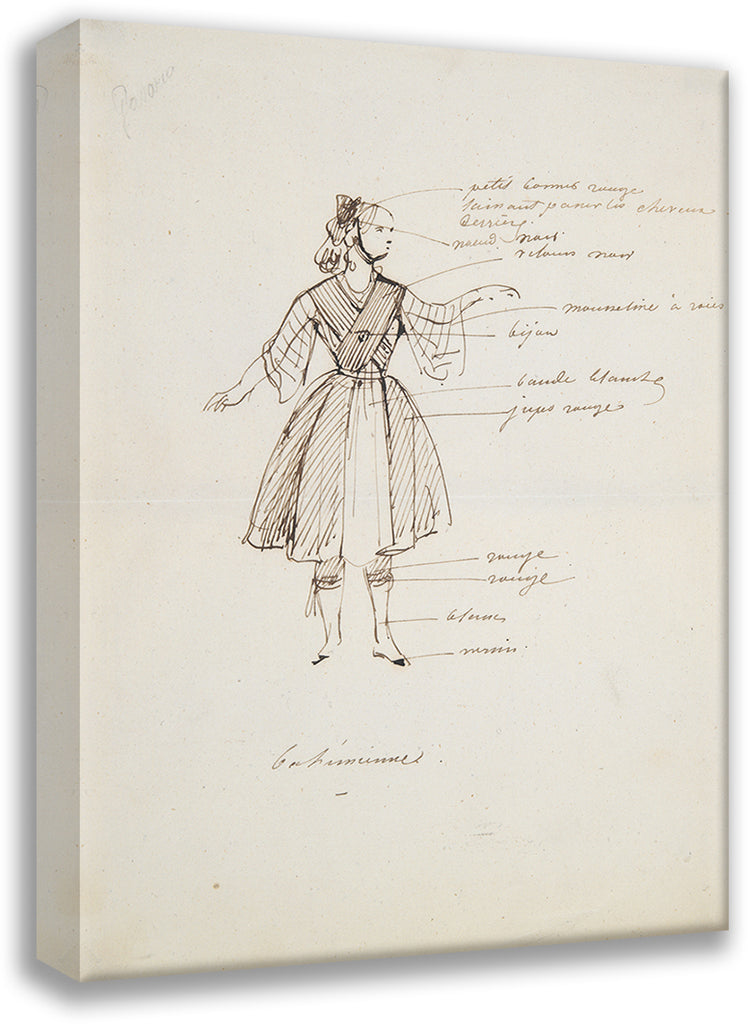 petit bonnet rouge
laissant passer les cheveux
derrière
noeud noir
velours noir
mousseline à raies
bijou
bande blanche
jupe rouge
rouge
rouge
blanc
vernis
bohémienne